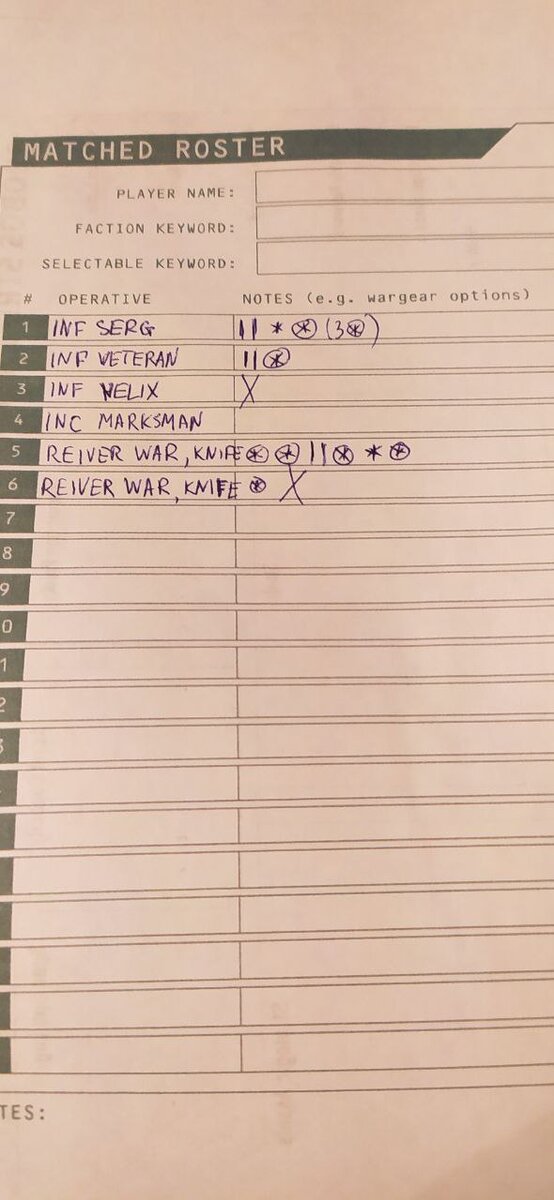 MATCHED ROSTER
PLAYER NAME:
FACTION KEYWORD:
SELECTABLE KEYWORD:
# OPERATIVE NOTES (e.g. wargear options)
1 INF SERG || * ⊛ (3⊛)
2 INF VETERAN || ⊛
3 INF HELIX X
4 INC MARKSMAN
5 REIVER WAR, KNIFE ⊛ ⊛ || ⊛ * ⊛
6 REIVER WAR, KNIFE ⊛ X
7
8
9
0
1
2
3
TES: